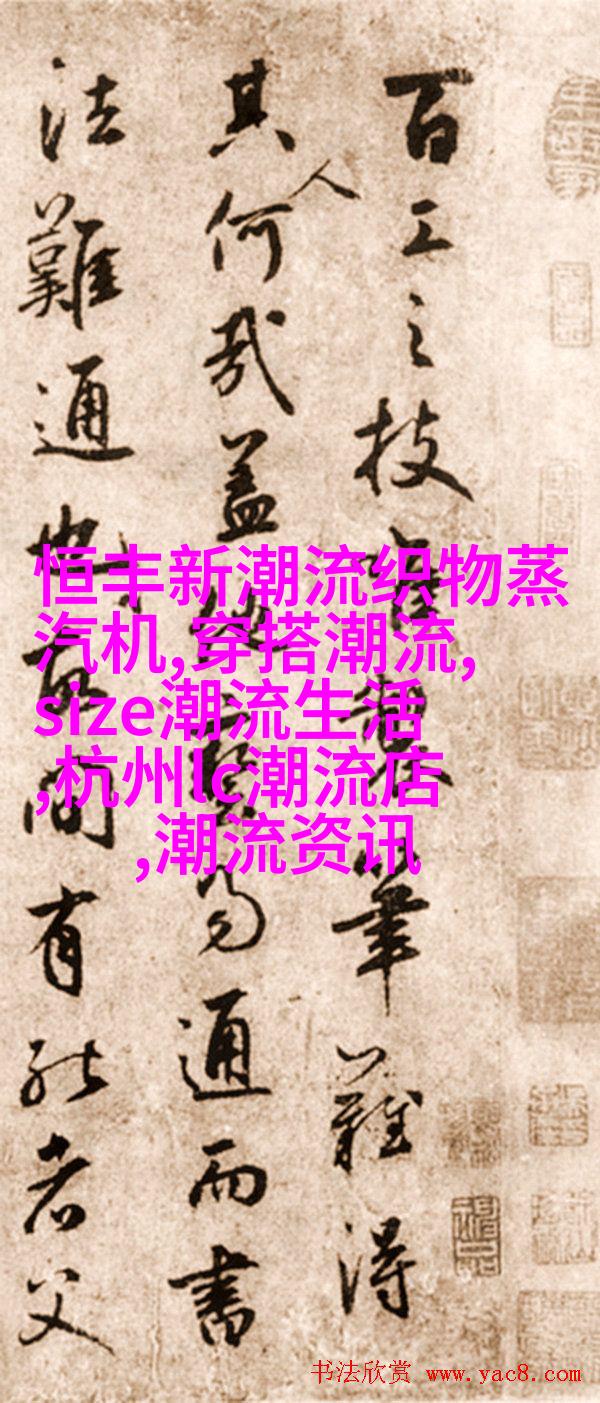 百工之技筆難得
其人何哉蓋易通而書
法難通間有能者父
恒丰新潮流织物蒸
汽机,穿搭潮流,
size潮流生活
,杭州lc潮流店
,潮流资讯
书法欣赏 www.yac8.com